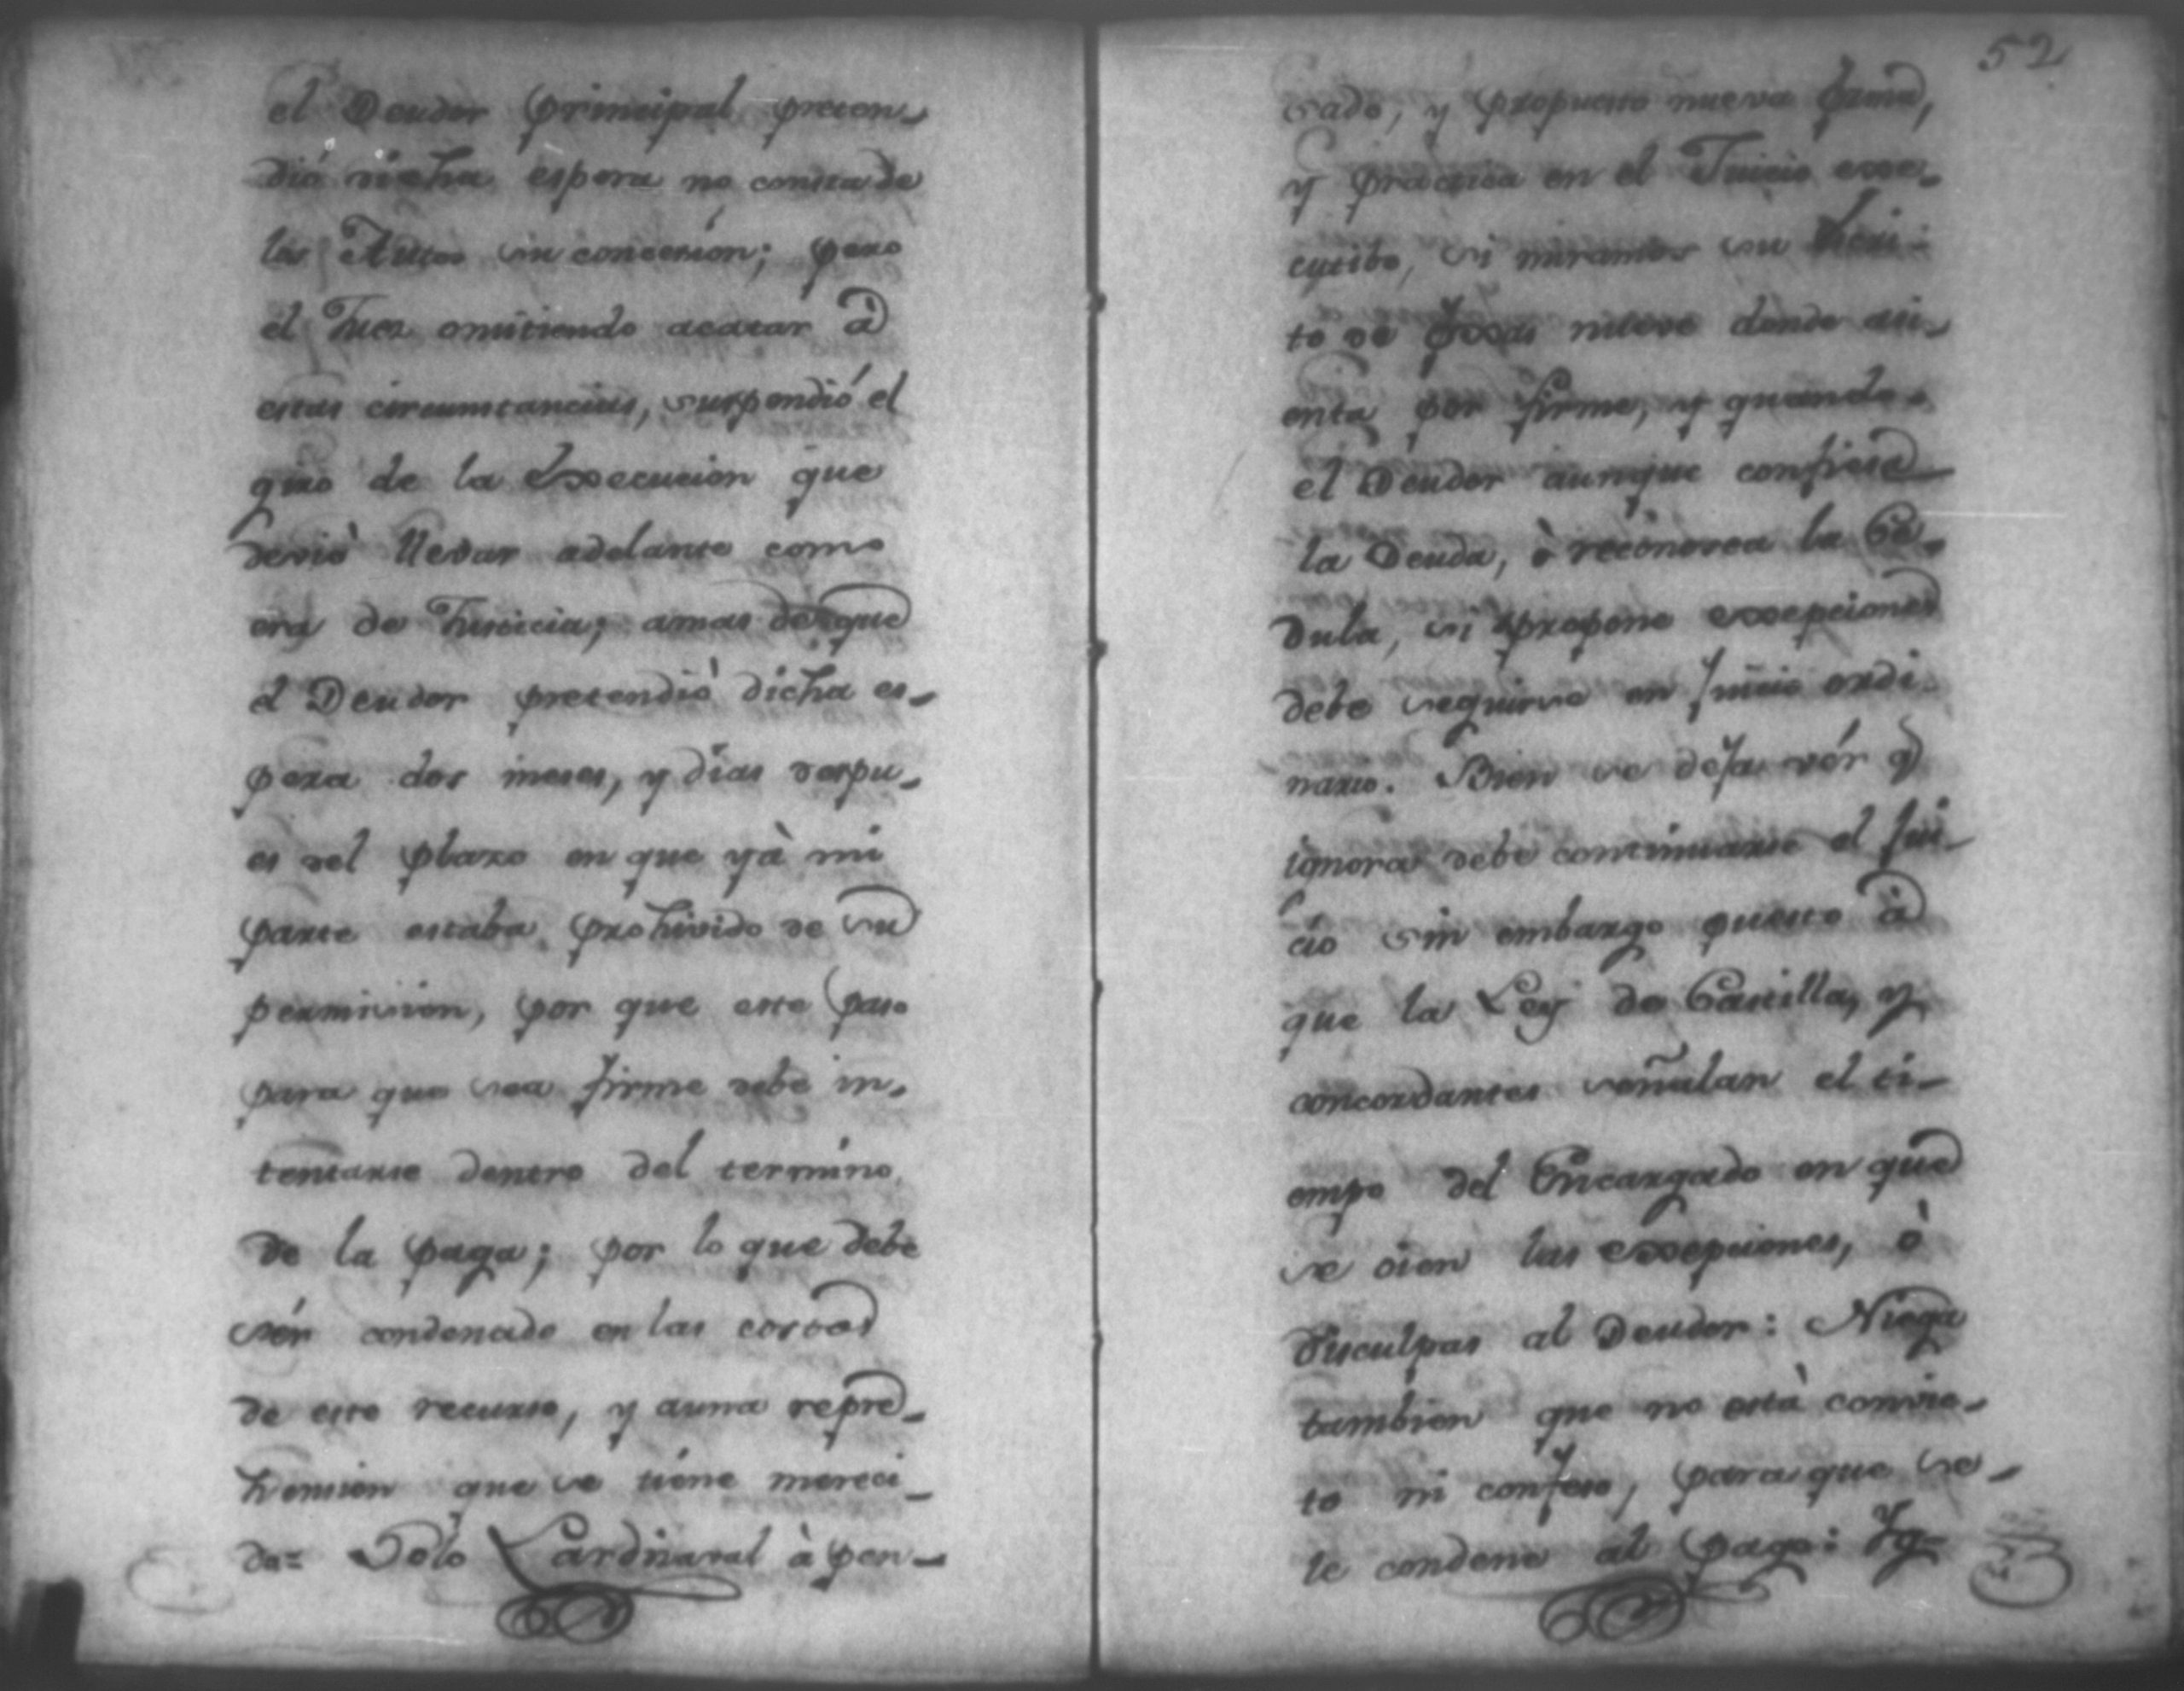 el Deudor principal preten-
dió dicha espera no consta de
los Autos su concesion; pero
el Juez omitiendo acatar à
estas circumstancias, suspendió el
giro de la Execucion que
devió llevar adelante como
era de Justicia; amas de que
el Deudor pretendió dicha es-
pera dos meses, y dias despu-
es del plazo en que yà mi
parte estaba prohivido de su
permision, por que este paso
para que sea firme debe in-
tentarse dentro del termino
de la paga; por lo que debe
sér condenado en las costas
de este recurso, y auna repre-
hension que se tiene mereci-
da= Solo Lardizaval à pen-
52
sado, y propuesto nueva forma,
y practica en el Juicio exe-
cutibo, si miramos su Escri-
to de foxas nueve donde asi-
enta por firme, y quando
el Deudor aunque confiese
la Deuda, ò reconosca la Ce-
dula, si propone exepciones
debe seguirse en juicio ordi-
nario. Bien se deja vér q
ignora debe continuarse el jui-
cio sin embargo puesto à
que la Ley de Castilla, y
concordantes señalan el ti-
empo del Encargado en que
se oien las exepciones, ò
disculpas al Deudor: Niega
tambien que no està convic-
to ni confeso, para que se
le condene al pago: Yg-